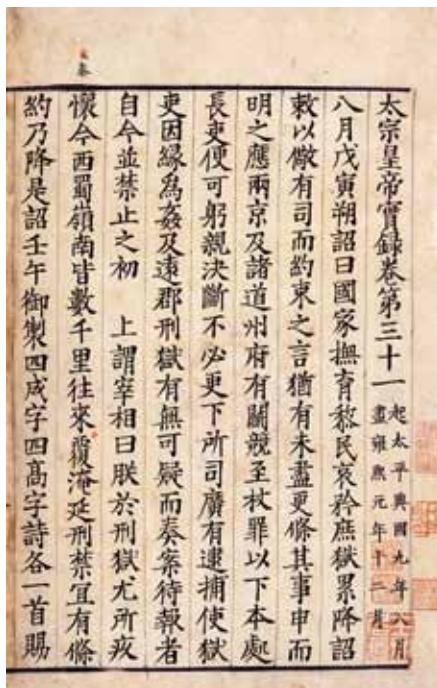 太宗皇帝實錄卷第三十一 起太平興國九年八月
盡雍熙元年十二月
八月戊寅朔詔曰國家撫育黎民哀矜庶獄累降詔
敕以儆有司而約束之言猶有未盡更條其事申而
明之應兩京及諸道州府有鬬競至杖罪以下本處
長吏便可躬親決斷不必更下所司廣有逮捕使獄
吏因緣為姦及遠郡刑獄有無可疑而奏案待報者
自今並禁止之初 上謂宰相曰朕於刑獄尤所疚
懷今西蜀嶺南皆數千里往來覆淹延刑禁宜有條
約乃降是詔壬午御製四成字四高字詩各一首賜